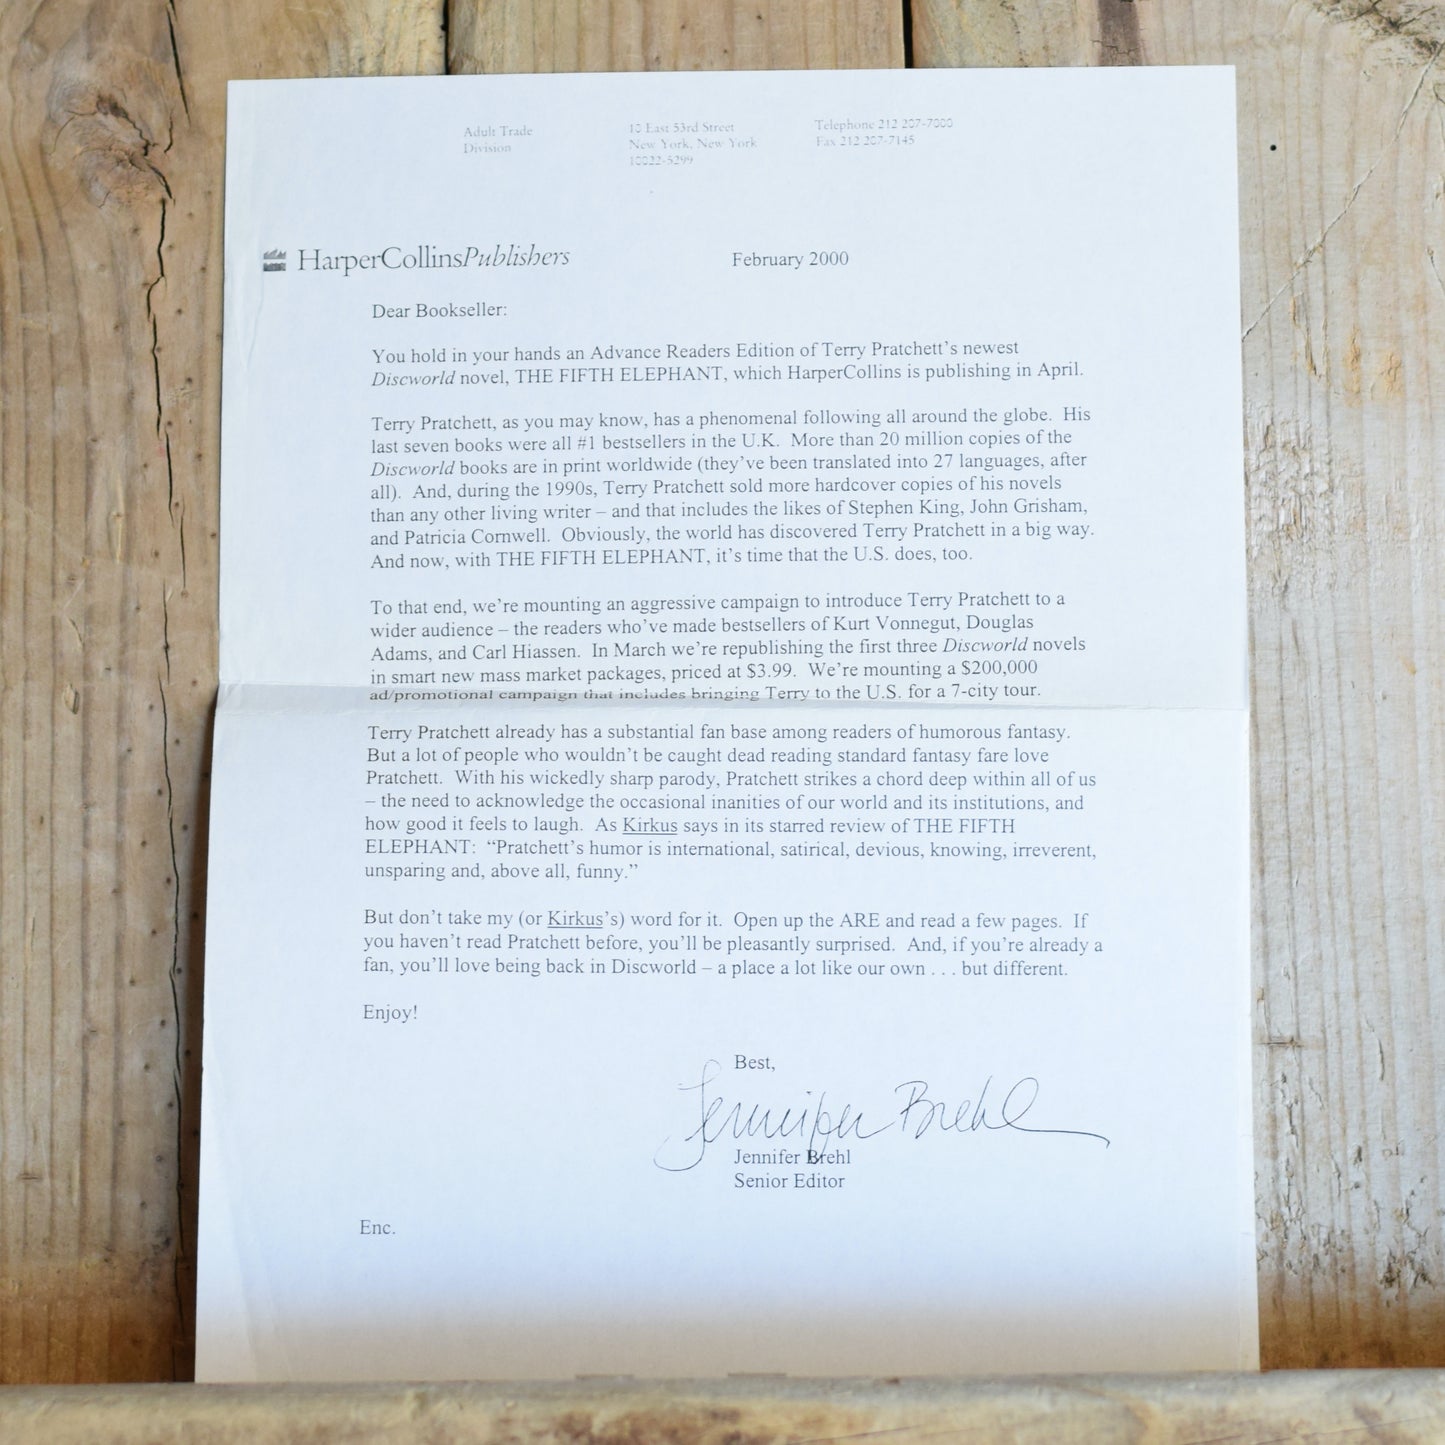 Adult Trade
Division
10 East 53rd Street
New York, New York
10022-5299
Telephone 212 207-7000
Fax 212 207-7145
HarperCollinsPublishers
February 2000
Dear Bookseller:
You hold in your hands an Advance Readers Edition of Terry Pratchett's newest
Discworld novel, THE FIFTH ELEPHANT, which HarperCollins is publishing in April.
Terry Pratchett, as you may know, has a phenomenal following all around the globe. His
last seven books were all #1 bestsellers in the U.K. More than 20 million copies of the
Discworld books are in print worldwide (they've been translated into 27 languages, after
all). And, during the 1990s, Terry Pratchett sold more hardcover copies of his novels
than any other living writer – and that includes the likes of Stephen King, John Grisham,
and Patricia Cornwell. Obviously, the world has discovered Terry Pratchett in a big way.
And now, with THE FIFTH ELEPHANT, it's time that the U.S. does, too.
To that end, we're mounting an aggressive campaign to introduce Terry Pratchett to a
wider audience – the readers who've made bestsellers of Kurt Vonnegut, Douglas
Adams, and Carl Hiassen. In March we're republishing the first three Discworld novels
in smart new mass market packages, priced at $3.99. We're mounting a $200,000
ad/promotional campaign that includes bringing Terry to the U.S. for a 7-city tour.
Terry Pratchett already has a substantial fan base among readers of humorous fantasy.
But a lot of people who wouldn't be caught dead reading standard fantasy fare love
Pratchett. With his wickedly sharp parody, Pratchett strikes a chord deep within all of us
– the need to acknowledge the occasional inanities of our world and its institutions, and
how good it feels to laugh. As Kirkus says in its starred review of THE FIFTH
ELEPHANT: "Pratchett's humor is international, satirical, devious, knowing, irreverent,
unsparing and, above all, funny."
But don't take my (or Kirkus's) word for it. Open up the ARE and read a few pages. If
you haven't read Pratchett before, you'll be pleasantly surprised. And, if you're already a
fan, you'll love being back in Discworld – a place a lot like our own . . . but different.
Enjoy!
Best,
Jennifer Brehl
Jennifer Brehl
Senior Editor
Enc.